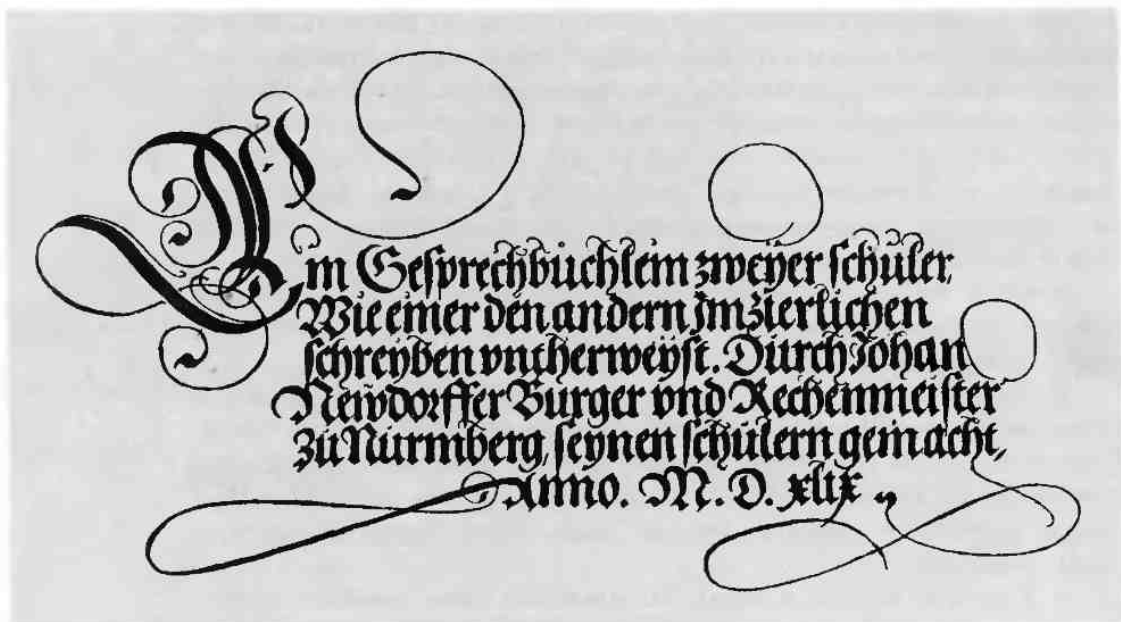 Ein Gesprechbüchlein zweyer schüler,
Wie einer den andern Im zierlichen
schreyben vntherweyst. Durch Johan
Newdorffer Burger vnd Rechenmeister
zu Nurmberg, seynen schülern gemacht,
Anno. M. D. xlix